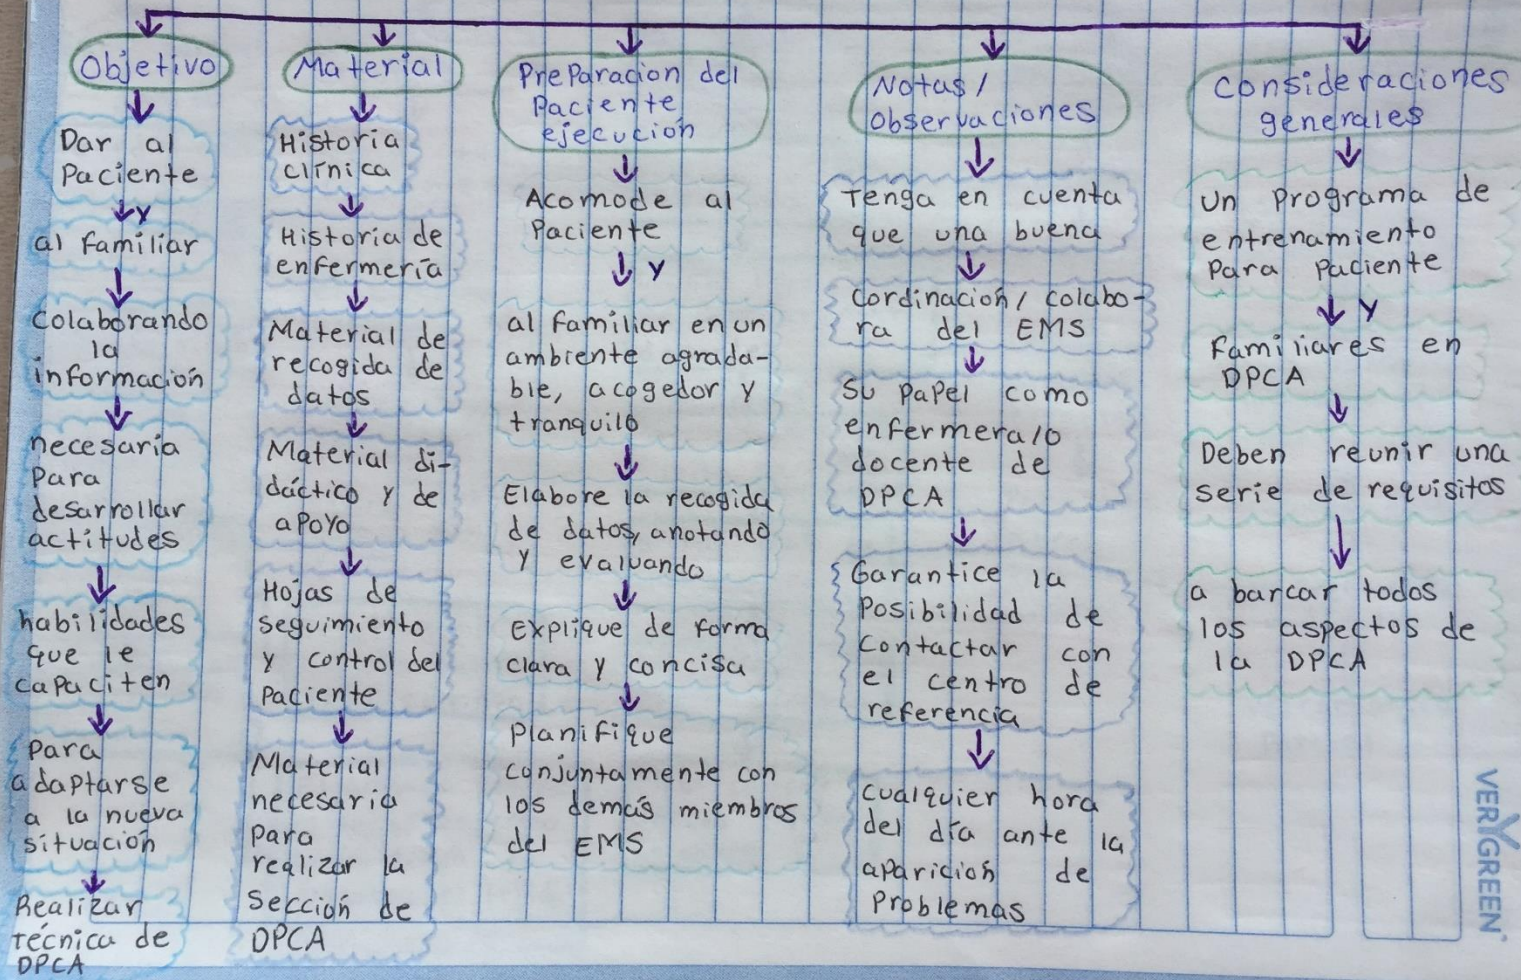 Objetivo
Dar al
Paciente
y
al familiar
Colaborando
la
información
necesaria
Para
desarrollar
actitudes
habilidades
que le
capaciten
Para
adaptarse
a la nueva
situación
Realizar
técnica de
DPCA
Material
Historia
clínica
Historia de
enfermería
Material de
recogida de
datos
Material di-
dáctico y de
apoyo
Hojas de
seguimiento
y control del
Paciente
Material
necesario
para
realizar la
Sección de
DPCA
Preparación del
Paciente
ejecución
Acomode al
Paciente
y
al familiar en un
ambiente agrada-
ble, acogedor y
tranquilo
Elabore la recogida
de datos, anotando
y evaluando
Explique de forma
clara y concisa
Planifique
conjuntamente con
los demás miembros
del EMS
Notas/
Observaciones
Tenga en cuenta
que una buena
Cordinación/colabo-
ra del EMS
Su papel como
enfermera/o
docente de
DPCA
Garantice la
Posibilidad de
contactar con
el centro de
referencia
Cualquier hora
del día ante la
aparición de
Problemas
Consideraciones
generales
Un Programa de
entrenamiento
Para Paciente
y
Familiares en
DPCA
Deben reunir una
serie de requisitos
a barcar todos
los aspectos de
la DPCA
VERYGREEN